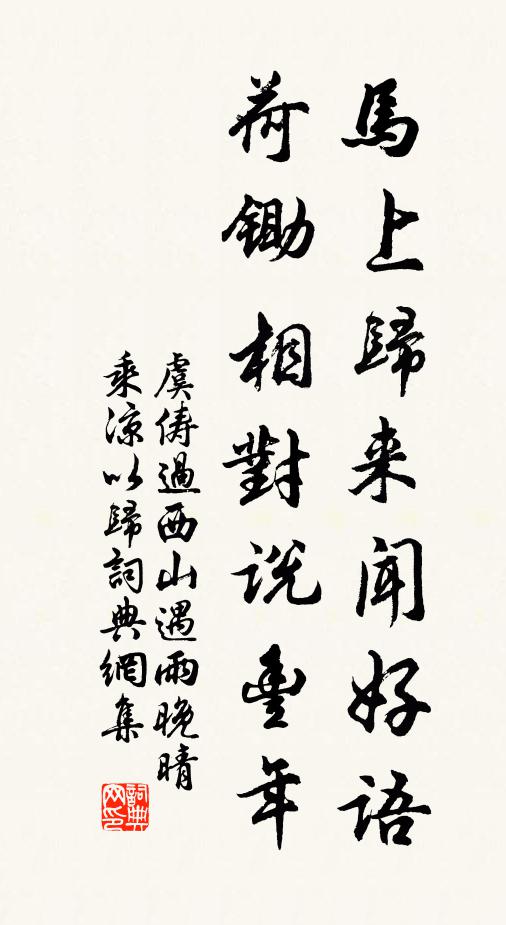 馬上歸来聞好語
荷鋤相對説豐年
虞儔過西山遇雨晚晴
乘涼以歸詞典網集
詞典网印